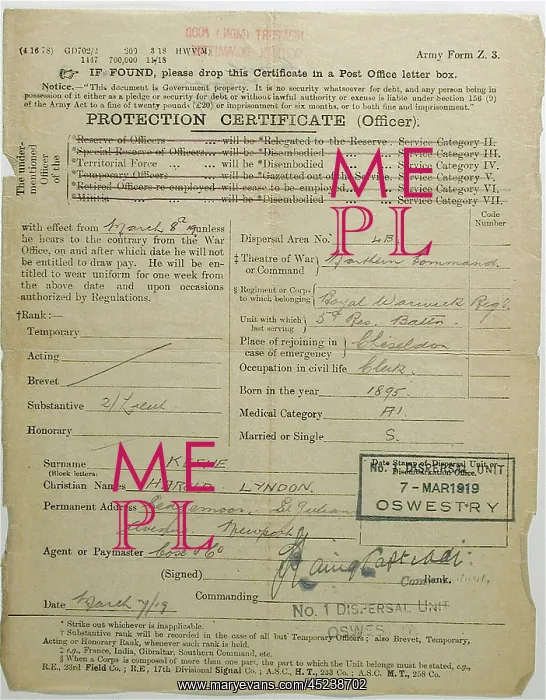 NEWPORT (MON) FOOD
(4 16 78) GD702/2 200 3 18 HWV(M)
1447 700,000 11/18
Army Form Z. 3.
IF FOUND, please drop this Certificate in a Post Office letter box.
Notice.—"This document is Government property. It is no security whatsoever for debt, and any person being in
possession of it either as a pledge or security for debt or without lawful authority or excuse is liable under Section 156 (9)
of the Army Act to a fine of twenty pounds (£20) or imprisonment for six months, or to both fine and imprisonment."
PROTECTION CERTIFICATE (Officer).
The under-mentioned Officer of the
*Reserve of Officers ... ... will be *Relegated to the Reserve. Service Category II.
*Special Reserve of Officers... ... will be *Disembodied ... ... Service Category III.
*Territorial Force ... ... will be *Disembodied Service Category IV.
*Temporary Officers ... will be *Gazetted out of the Service. Service Category V.
*Retired Officers re-employed will cease to be employed. Service Category VI.
*Militia ... will be *Disembodied ... ... Service Category VII.
with effect from March 8th 19 unless
he hears to the contrary from the War
Office, on and after which date he will not
be entitled to draw pay. He will be en-
titled to wear uniform for one week from
the above date and upon occasions
authorized by Regulations.
†Rank:—
Temporary
Acting
Brevet
Substantive 2/Lieut.
Honorary
Code
Number
Dispersal Area No. 4B
‡ Theatre of War or Command Northern Command.
§ Regiment or Corps to which belonging Royal Warwick Regt.
Unit with which last serving 5th Res. Battn.
Place of rejoining in case of emergency Chiseldon
Occupation in civil life Clerk.
Born in the year 1895.
Medical Category A1.
Married or Single S.
Surname KEENE
(Block letters)
Christian Names HAROLD LYNDON.
Permanent Address St Julian
Avenue Newport
Agent or Paymaster Cox & Co
Date Stamp of Dispersal Unit or
Disembarkation Office.
No. 1 DISPERSAL UNIT
7-MAR 1919
OSWESTRY
(Signed) Capt
Rank.
Commanding
No. 1 DISPERSAL UNIT
OSWESTRY
Date March 7/19
* Strike out whichever is inapplicable.
† Substantive rank will be recorded in the case of all but Temporary Officers; also Brevet, Temporary,
Acting or Honorary Rank, whenever such rank is held.
‡ e.g., France, India, Gibraltar, Southern Command, etc.
§ When a Corps is composed of more than one part, the part to which the Unit belongs must be stated, e.g.,
R.E., 23rd Field Co.; R.E, 17th Divisional Signal Co.; A.S.C., H. T., 233 Co.; A.S.C. M. T., 258 Co.
ME
PL
ME
PL
www.maryevans.com/45238702